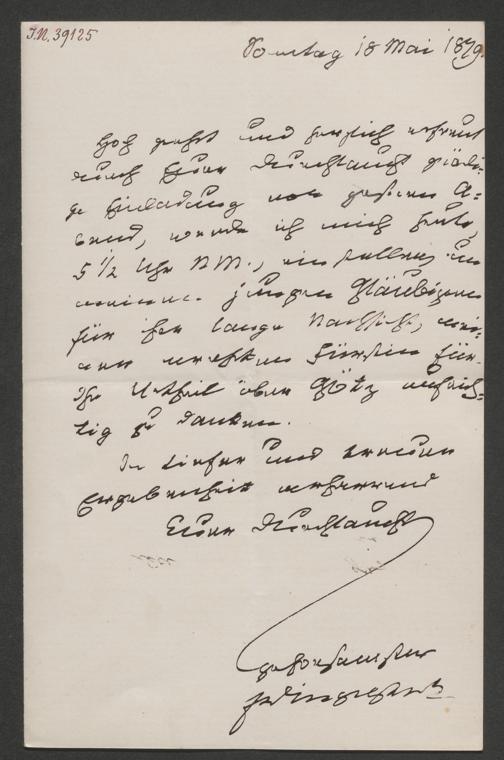 I.N. 39125
Sonntag 18 Mai 1879.
Hoch geehrt und herzlich erfreut
durch Euer Durchlaucht gnädi-
ge Einladung von gestern A-
bend, werde ich mich heute,
5 1/2 Uhr NM., einstellen, um
meinem jungen Gläubigern
für ihre lange Nachsicht, mei-
ner verehrten Fürstin für
Ihr Urtheil über Götz aufrich-
tig zu danken.
In tiefer und treuer
Ergebenheit verharrend
Euer Durchlaucht
gehorsamster